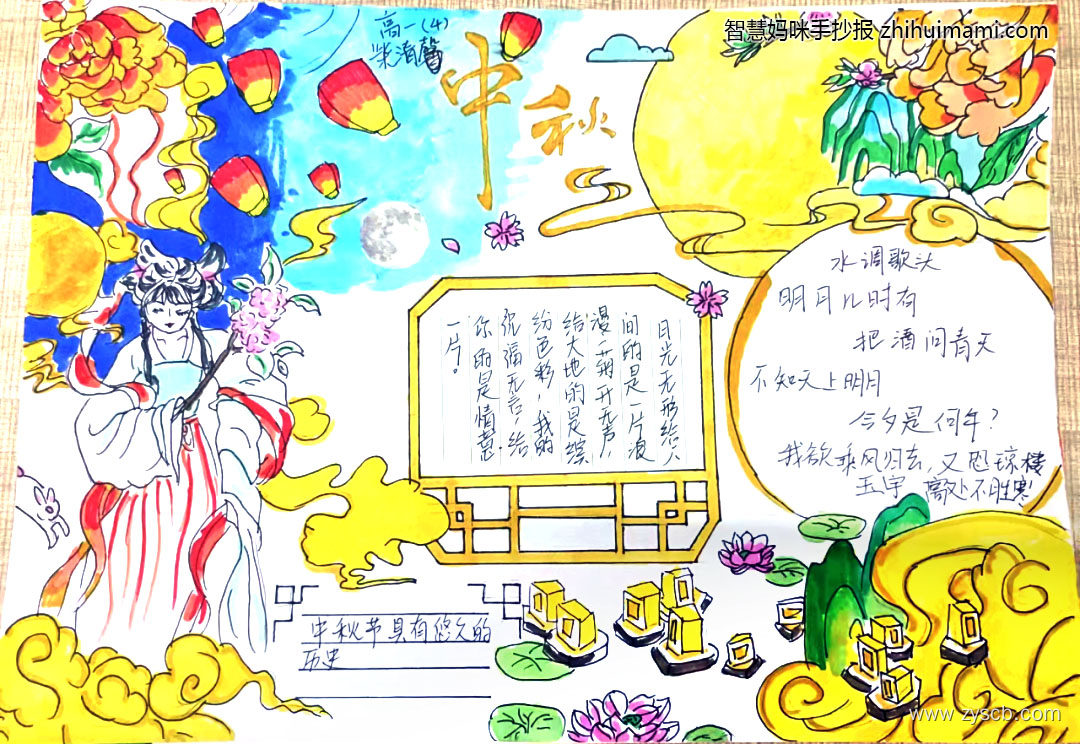 智慧妈咪手抄报 zhihuimami.com
高一(4)
柴清馨
中秋
月光无形给人
间的是一片浪
漫,菊开无声,
给大地的是缤
纷色彩,我的
祝福无言,给
你的是情意
一片。
水调歌头
明月几时有
把酒问青天
不知天上明月
今夕是何年?
我欲乘风归去,又恐琼楼
玉宇 高处不胜寒
中秋节具有悠久的
历史
www.zyscb.com